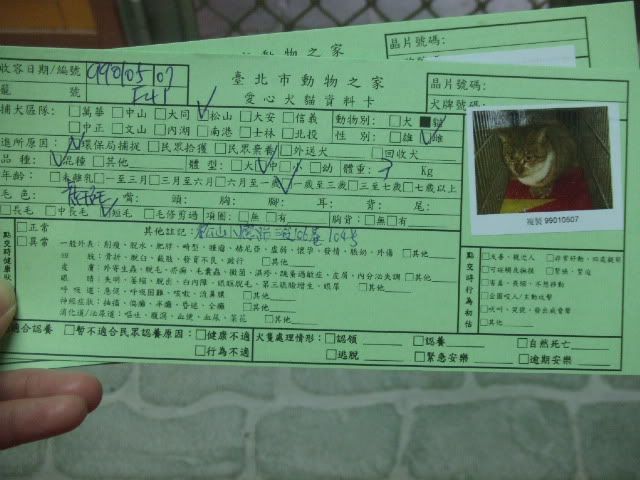 晶片號碼:
動物之家
收容日期/編號 990105 07
臺北市動物之家
晶片號碼:
籠 號 F41
愛心犬貓資料卡
犬牌號碼:
捕犬區隊: □萬華 □中山 □大同 ☑松山 □大安 □信義 動物別: □犬 ■貓
□中正 □文山 □內湖 □南港 □士林 □北投 性 別: □雄 ☑雌
進所原因: ☑環保局捕捉 □民眾拾獲 □民眾棄養 □外送犬 □回收犬
品 種: ☑混種 □其他 體 型: □大 ☑中 □小 □幼 體重: 3 Kg
年齡: □未離乳 □一至三月 □三月至六月 □六月至一歲 ☑一歲至三歲 □三至七歲 □七歲以上
毛 色: 嘴: 頭: 胸: 腳: 耳: 背: 尾:
□長毛 □中長毛 ☑短毛 □毛修剪過 項圈: □無 □有 胸背: □無 □有
複製 99010507
點交時健康狀
□正常
□異常
其他註記:
一般外表: 削瘦、脫水、肥胖、畸型、腫瘤、結尼亞、虛弱、懷孕、發情、脹奶、外傷 □其他
肢 體: 骨折、脫臼、截肢、發育不良、跛行 □其他
皮 膚: 外寄生蟲、脫毛、疥癬、毛囊蟲、黴菌、濕疹、跳蚤過敏症、皮屑、內分泌失調 □其他
眼 睛: 失明、萎縮、脫出、白內障、眼瞼脫毛、第三眼瞼增生、眼屎 □其他
呼吸道: 急促、呼吸困難、咳嗽、流鼻膿 □其他
神經症狀: 抽搐、偏癱、半癱、昏迷、全癱 □其他
消化道/泌尿道: 嘔吐、腹瀉、血便、血尿、菜花 □其他
點交時行為初估
□友善、親近人 □非常好動、四處觀察
□可碰觸及撫摸 □緊張、緊迫
□害羞、畏縮、不想移動
□企圖咬人/主動攻擊
□吠叫、哭號、發出威脅聲
□其他
適合認養 □暫不適合民眾認養原因: □健康不適 犬隻處理情形: □認領 □認養 □自然死亡
□行為不適 □逃脫 □緊急安樂 □逾期安樂